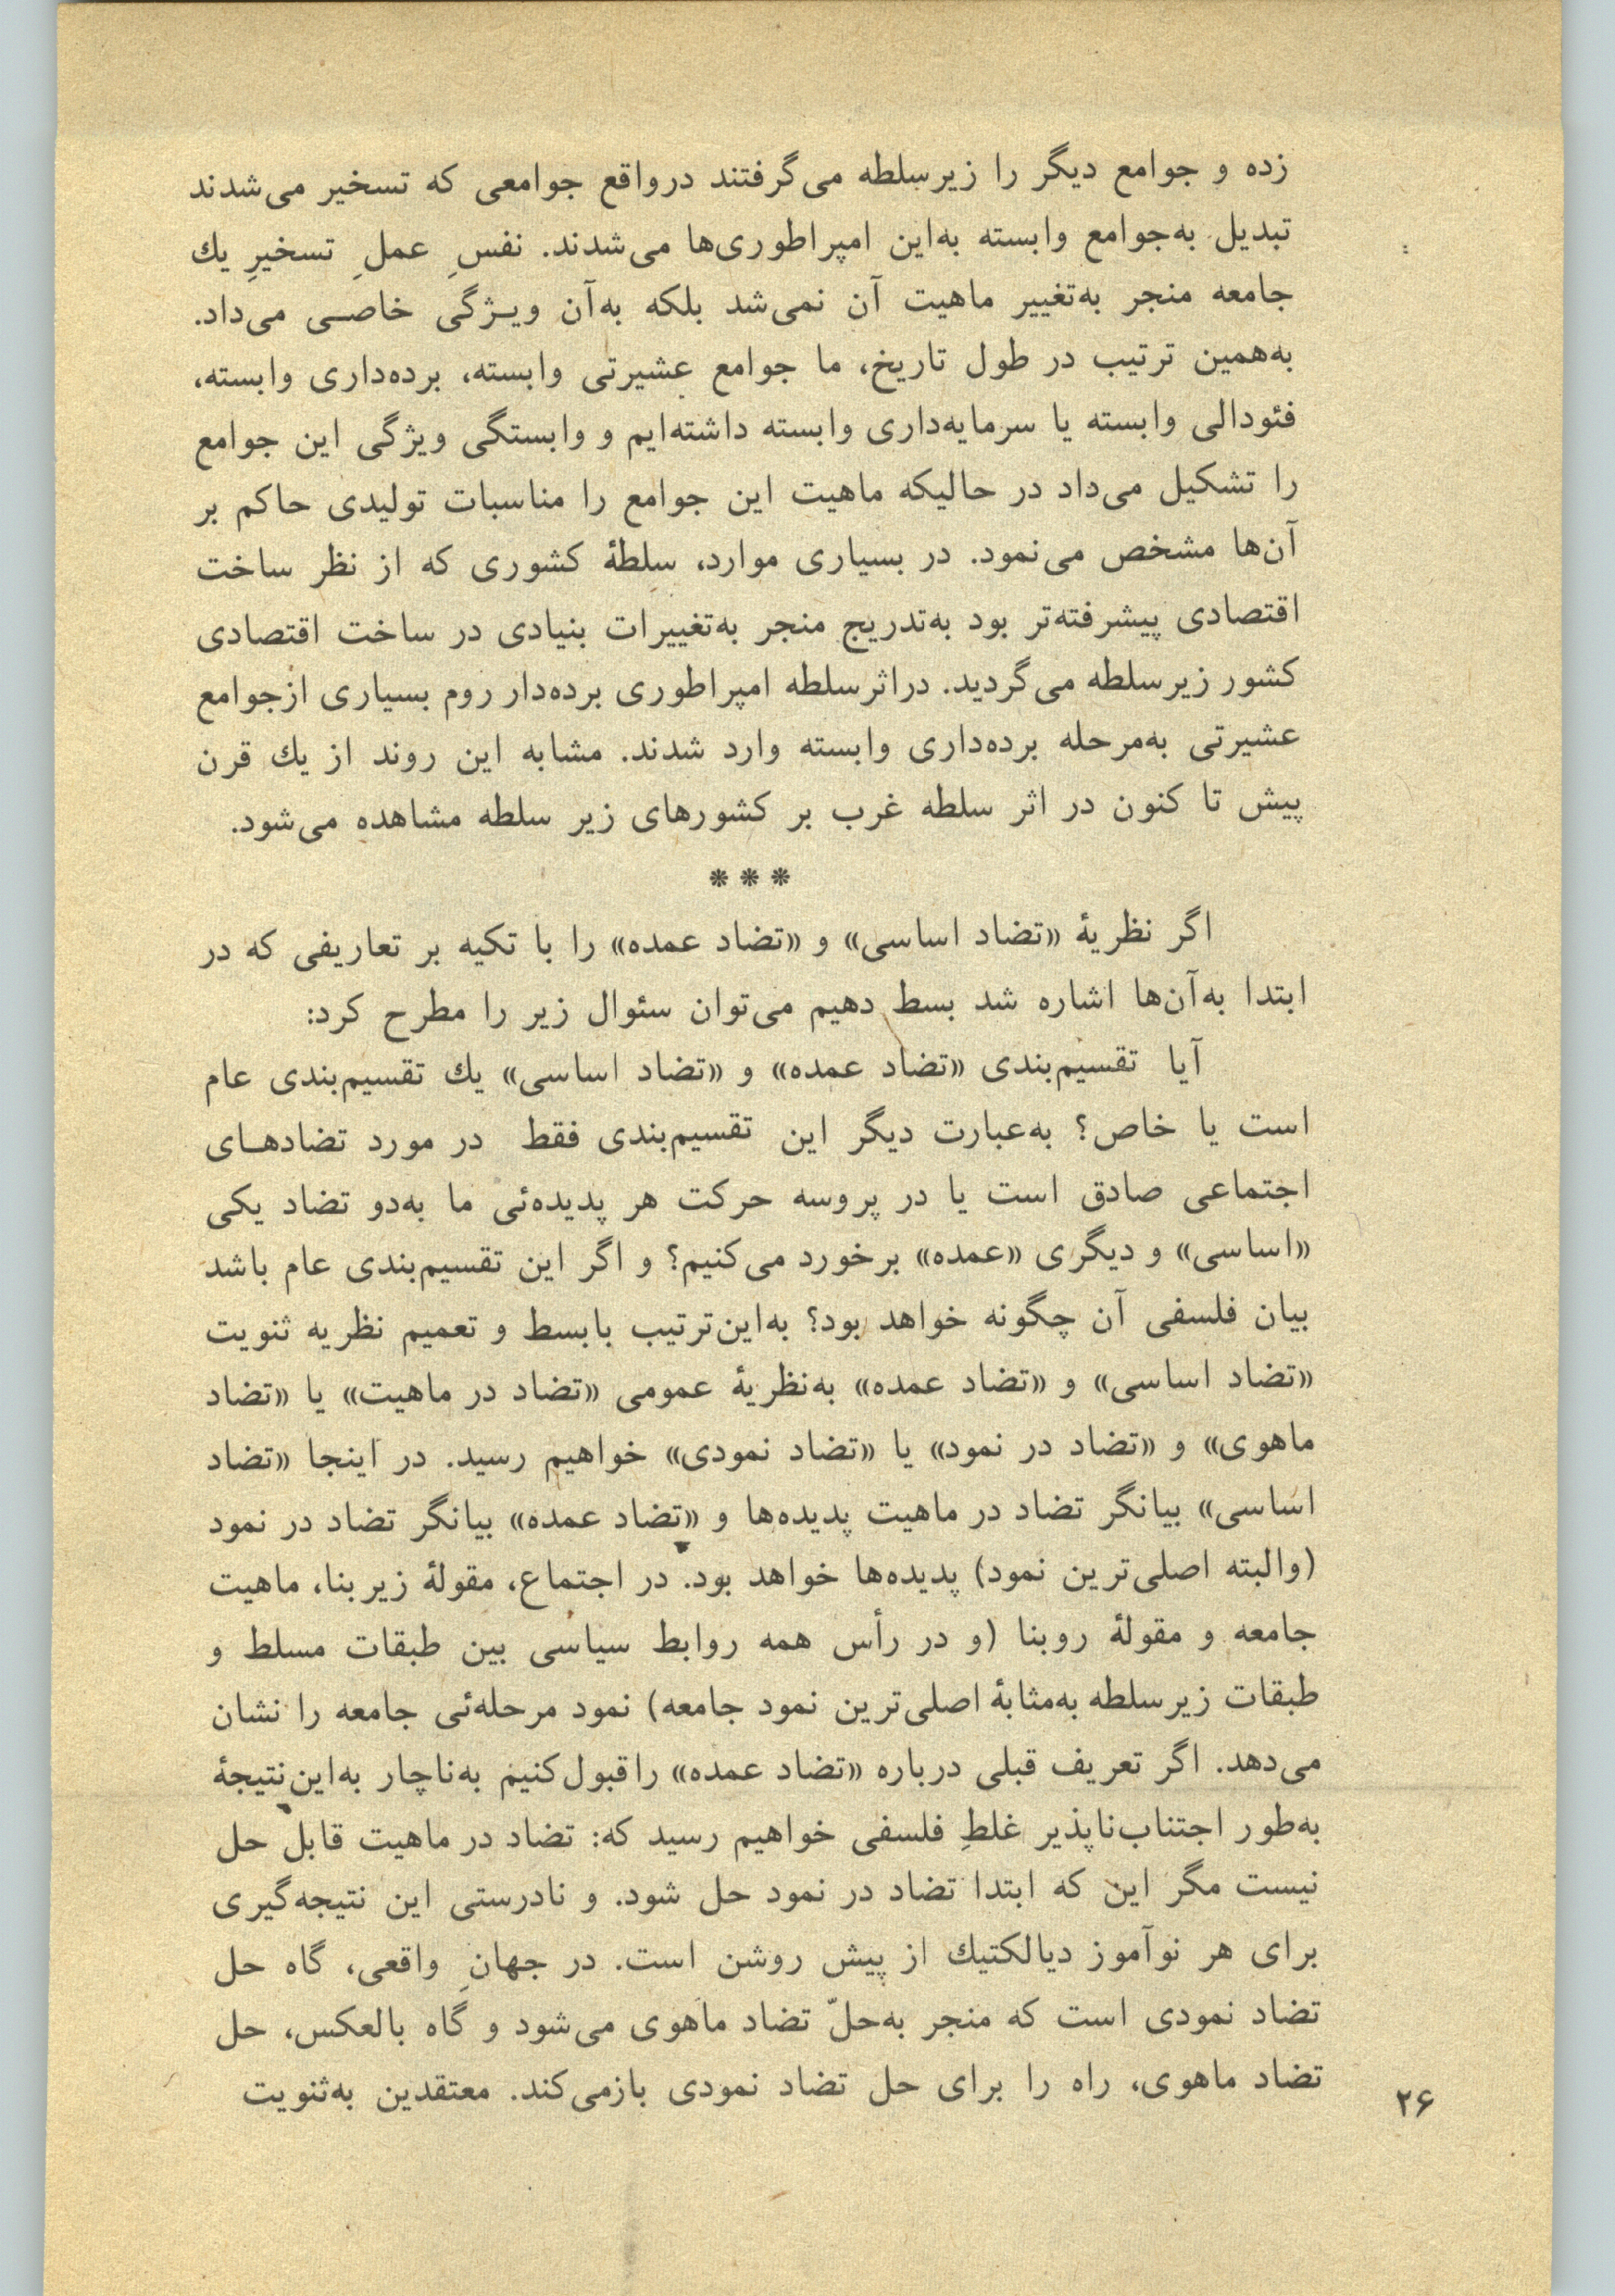 زده و جوامع دیگر را زیرسلطه می‌گرفتند درواقع جوامعی که تسخیر می‌شدند
تبدیل به‌جوامع وابسته به‌این امپراطوری‌ها می‌شدند. نفسِ عملِ تسخیرِ یك
جامعه منجر به‌تغییر ماهیت آن نمی‌شد بلکه به‌آن ویـژگی خاصـی می‌داد.
به‌همین ترتیب در طول تاریخ، ما جوامع عشیرتی وابسته، برده‌داری وابسته،
فئودالی وابسته یا سرمایه‌داری وابسته داشته‌ایم و وابستگی ویژگی این جوامع
را تشکیل می‌داد در حالیکه ماهیت این جوامع را مناسبات تولیدی حاکم بر
آن‌ها مشخص می‌نمود. در بسیاری موارد، سلطهٔ کشوری که از نظر ساخت
اقتصادی پیشرفته‌تر بود به‌تدریج منجر به‌تغییرات بنیادی در ساخت اقتصادی
کشور زیرسلطه می‌گردید. دراثرسلطه امپراطوری برده‌دار روم بسیاری ازجوامع
عشیرتی به‌مرحله برده‌داری وابسته وارد شدند. مشابه این روند از یك قرن
پیش تا کنون در اثر سلطه غرب بر کشورهای زیر سلطه مشاهده می‌شود.
***
اگر نظریهٔ «تضاد اساسی» و «تضاد عمده» را با تکیه بر تعاریفی که در
ابتدا به‌آن‌ها اشاره شد بسط دهیم می‌توان سئوال زیر را مطرح کرد:
آیا تقسیم‌بندی «تضاد عمده» و «تضاد اساسی» یك تقسیم‌بندی عام
است یا خاص؟ به‌عبارت دیگر این تقسیم‌بندی فقط در مورد تضادهـای
اجتماعی صادق است یا در پروسه حرکت هر پدیده‌ئی ما به‌دو تضاد یکی
«اساسی» و دیگری «عمده» برخورد می‌کنیم؟ و اگر این تقسیم‌بندی عام باشد
بیان فلسفی آن چگونه خواهد بود؟ به‌این‌ترتیب بابسط و تعمیم نظریه ثنویت
«تضاد اساسی» و «تضاد عمده» به‌نظریهٔ عمومی «تضاد در ماهیت» یا «تضاد
ماهوی» و «تضاد در نمود» یا «تضاد نمودی» خواهیم رسید. در اینجا «تضاد
اساسی» بیانگر تضاد در ماهیت پدیده‌ها و «تضاد عمده» بیانگر تضاد در نمود
(والبته اصلی‌ترین نمود) پدیده‌ها خواهد بود. در اجتماع، مقولهٔ زیربنا، ماهیت
جامعه و مقولهٔ روبنا (و در رأس همه روابط سیاسی بین طبقات مسلط و
طبقات زیرسلطه به‌مثابهٔ اصلی‌ترین نمود جامعه) نمود مرحله‌ئی جامعه را نشان
می‌دهد. اگر تعریف قبلی درباره «تضاد عمده» راقبول‌کنیم به‌ناچار به‌این‌نتیجهٔ
به‌طور اجتناب‌ناپذیر غلطِ فلسفی خواهیم رسید که: تضاد در ماهیت قابل حل
نیست مگر این که ابتدا تضاد در نمود حل شود. و نادرستی این نتیجه‌گیری
برای هر نوآموز دیالکتیك از پیش روشن است. در جهانِ واقعی، گاه حل
تضاد نمودی است که منجر به‌حلّ تضاد ماهوی می‌شود و گاه بالعکس، حل
تضاد ماهوی، راه را برای حل تضاد نمودی بازمی‌کند. معتقدین به‌ثنویت
۲۶